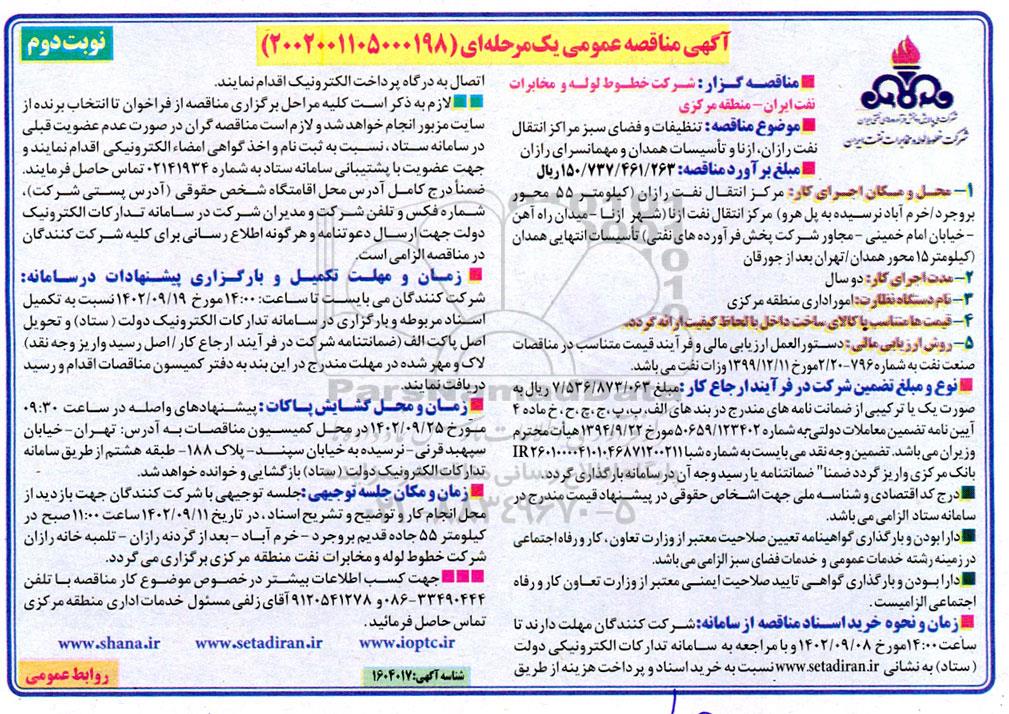 آگهی مناقصه عمومی یک مرحله‌ای (۲۰۰۲۰۰۱۱۰۵۰۰۰۱۹۸)
نوبت دوم
شرکت خطوط لوله و مخابرات نفت ایران
مناقصه گزار: شرکت خطوط لوله و مخابرات
نفت ایران - منطقه مرکزی
موضوع مناقصه: تنظیفات و فضای سبز مراکز انتقال
نفت رازان، ازنا و تأسیسات همدان و مهمانسرای رازان
مبلغ برآورد مناقصه: ۱۵۰/۷۳۷/۴۶۱/۲۶۳ ریال
۱- محل و مکان اجرای کار: مرکز انتقال نفت رازان (کیلومتر ۵۵ محور
بروجرد/خرم آباد نرسیده به پل هرو) مرکز انتقال نفت ازنا (شهر ازنا - میدان راه آهن
- خیابان امام خمینی - مجاور شرکت پخش فرآورده های نفتی) تأسیسات انتهایی همدان
(کیلومتر ۱۵ محور همدان/تهران بعد از جورقان
۲- مدت اجرای کار: دو سال
۳- نام دستگاه نظارت: امور اداری منطقه مرکزی
۴- قیمت ها متناسب با کالای ساخت داخل با لحاظ کیفیت ارائه گردد.
۵- روش ارزیابی مالی: دستورالعمل ارزیابی مالی و فرآیند قیمت متناسب در مناقصات
صنعت نفت به شماره ۷۹۶-۲/۲۰ مورخ ۱۳۹۹/۱۲/۱۱ وزات نفت می باشد.
نوع و مبلغ تضمین شرکت در فرآیند ارجاع کار: مبلغ ۷/۵۳۶/۸۷۳/۰۶۳ ریال به
صورت یک یا ترکیبی از ضمانت نامه های مندرج در بند های الف، ب، پ، ج، چ، ح، خ ماده ۴
آیین نامه تضمین معاملات دولتی به شماره ۵۰۶۵۹/۱۲۳۴۰۲ مورخ ۱۳۹۴/۹/۲۲ هیأت محترم
وزیران می باشد. تضمین وجه نقد می بایست به شماره شبا IR۲۶۰۱۰۰۰۰۴۱۰۱۰۴۶۸۷۱۲۰۰۲۱۱
بانک مرکزی واریز گردد ضمنا" ضمانتنامه یا رسید وجه آن در سامانه بارگذاری گردد.
درج کد اقتصادی و شناسه ملی جهت اشخاص حقوقی در پیشنهاد قیمت مندرج در
سامانه ستاد الزامی می باشد.
دارا بودن و بارگذاری گواهینامه تعیین صلاحیت معتبر از وزارت تعاون، کار و رفاه اجتماعی
در زمینه رشته خدمات عمومی و خدمات فضای سبز الزامی می باشد.
دارا بودن و بارگذاری گواهی تایید صلاحیت ایمنی معتبر از وزارت تعاون کار و رفاه
اجتماعی الزامیست.
زمان و نحوه خرید اسناد مناقصه از سامانه: شرکت کنندگان مهلت دارند تا
ساعت ۱۴:۰۰ مورخ ۱۴۰۲/۰۹/۰۸ و با مراجعه به سامانه تدارکات الکترونیکی دولت
(ستاد) به نشانی www.setadiran.ir نسبت به خرید اسناد و پرداخت هزینه از طریق
اتصال به درگاه پرداخت الکترونیک اقدام نمایند.
لازم به ذکر است کلیه مراحل برگزاری مناقصه از فراخوان تا انتخاب برنده از
سایت مزبور انجام خواهد شد و لازم است مناقصه گران در صورت عدم عضویت قبلی
در سامانه ستاد، نسبت به ثبت نام و اخذ گواهی امضاء الکترونیکی اقدام نمایند و
جهت عضویت با پشتیبانی سامانه ستاد به شماره ۰۲۱۴۱۹۳۴ تماس حاصل فرمایند.
ضمنأ درج کامل آدرس محل اقامتگاه شخص حقوقی (آدرس پستی شرکت)،
شماره فکس و تلفن شرکت و مدیران شرکت در سامانه تدارکات الکترونیک
دولت جهت ارسال دعوتنامه و هرگونه اطلاع رسانی برای کلیه شرکت کنندگان
در مناقصه الزامی است.
زمان و مهلت تکمیل و بارگزاری پیشنهادات درسامانه:
شرکت کنندگان می بایست تا ساعت: ۱۴:۰۰ مورخ ۱۴۰۲/۰۹/۱۹ نسبت به تکمیل
اسناد مربوطه و بارگزاری در سامانه تدارکات الکترونیک دولت (ستاد) و تحویل
اصل پاکت الف (ضمانتنامه شرکت در فرآیند ارجاع کار / اصل رسید واریز وجه نقد)
لاک و مهر شده در مهلت مندرج در این بند به دفتر کمیسون مناقصات اقدام و رسید
دریافت نمایند.
زمان و محل گشایش پاکات: پیشنهادهای واصله در ساعت ۰۹:۳۰
مورخ ۱۴۰۲/۰۹/۲۵ در محل کمیسیون مناقصات به آدرس: تهران - خیابان
سپهبد قرنی - نرسیده به خیابان سپند - پلاک ۱۸۸ - طبقه هشتم از طریق سامانه
تدارکات الکترونیک دولت (ستاد) بازگشایی و خوانده خواهد شد.
زمان و مکان جلسه توجیهی: جلسه توجیهی با شرکت کنندگان جهت بازدید از
محل انجام کار و توضیح و تشریح اسناد، در تاریخ ۱۴۰۲/۰۹/۱۱ ساعت ۱۱:۰۰ صبح در
کیلومتر ۵۵ جاده قدیم بروجرد - خرم آباد - بعد از گردنه رازان - تلمبه خانه رازان
شرکت خطوط لوله و مخابرات نفت منطقه مرکزی برگزاری می گردد.
جهت کسب اطلاعات بیشتر در خصوص موضوع کار مناقصه با تلفن
۰۸۶-۳۳۴۹۰۴۴۴ و ۹۱۲۰۵۴۱۲۷۸ آقای زلفی مسئول خدمات اداری منطقه مرکزی
تماس حاصل فرمائید.
www.shana.ir www.setadiran.ir www.ioptc.ir
شناسه آگهی: ۱۶۰۴۰۱۷
روابط عمومی
ParsNamadData
۰۲۱-۸۸۳۴۹۶۷۰-۵